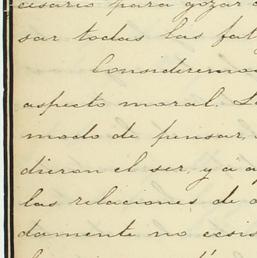 cesario para gozar
sar todas las fal
Consideremos
aspecto moral.
modo de pensar,
dieron el ser, y a
las relaciones de
damente no ecsis